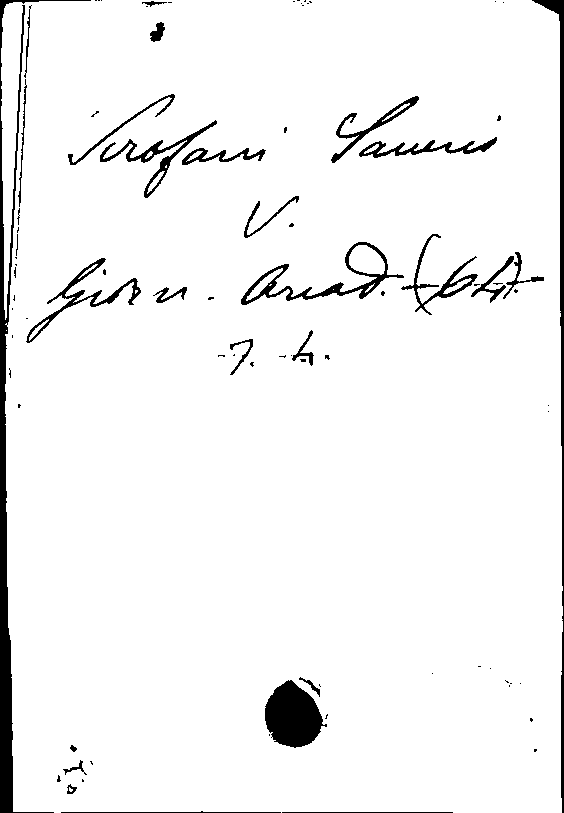 Scrofani Saverio
V.
Giorn. Arcad. (64).
7. 4.